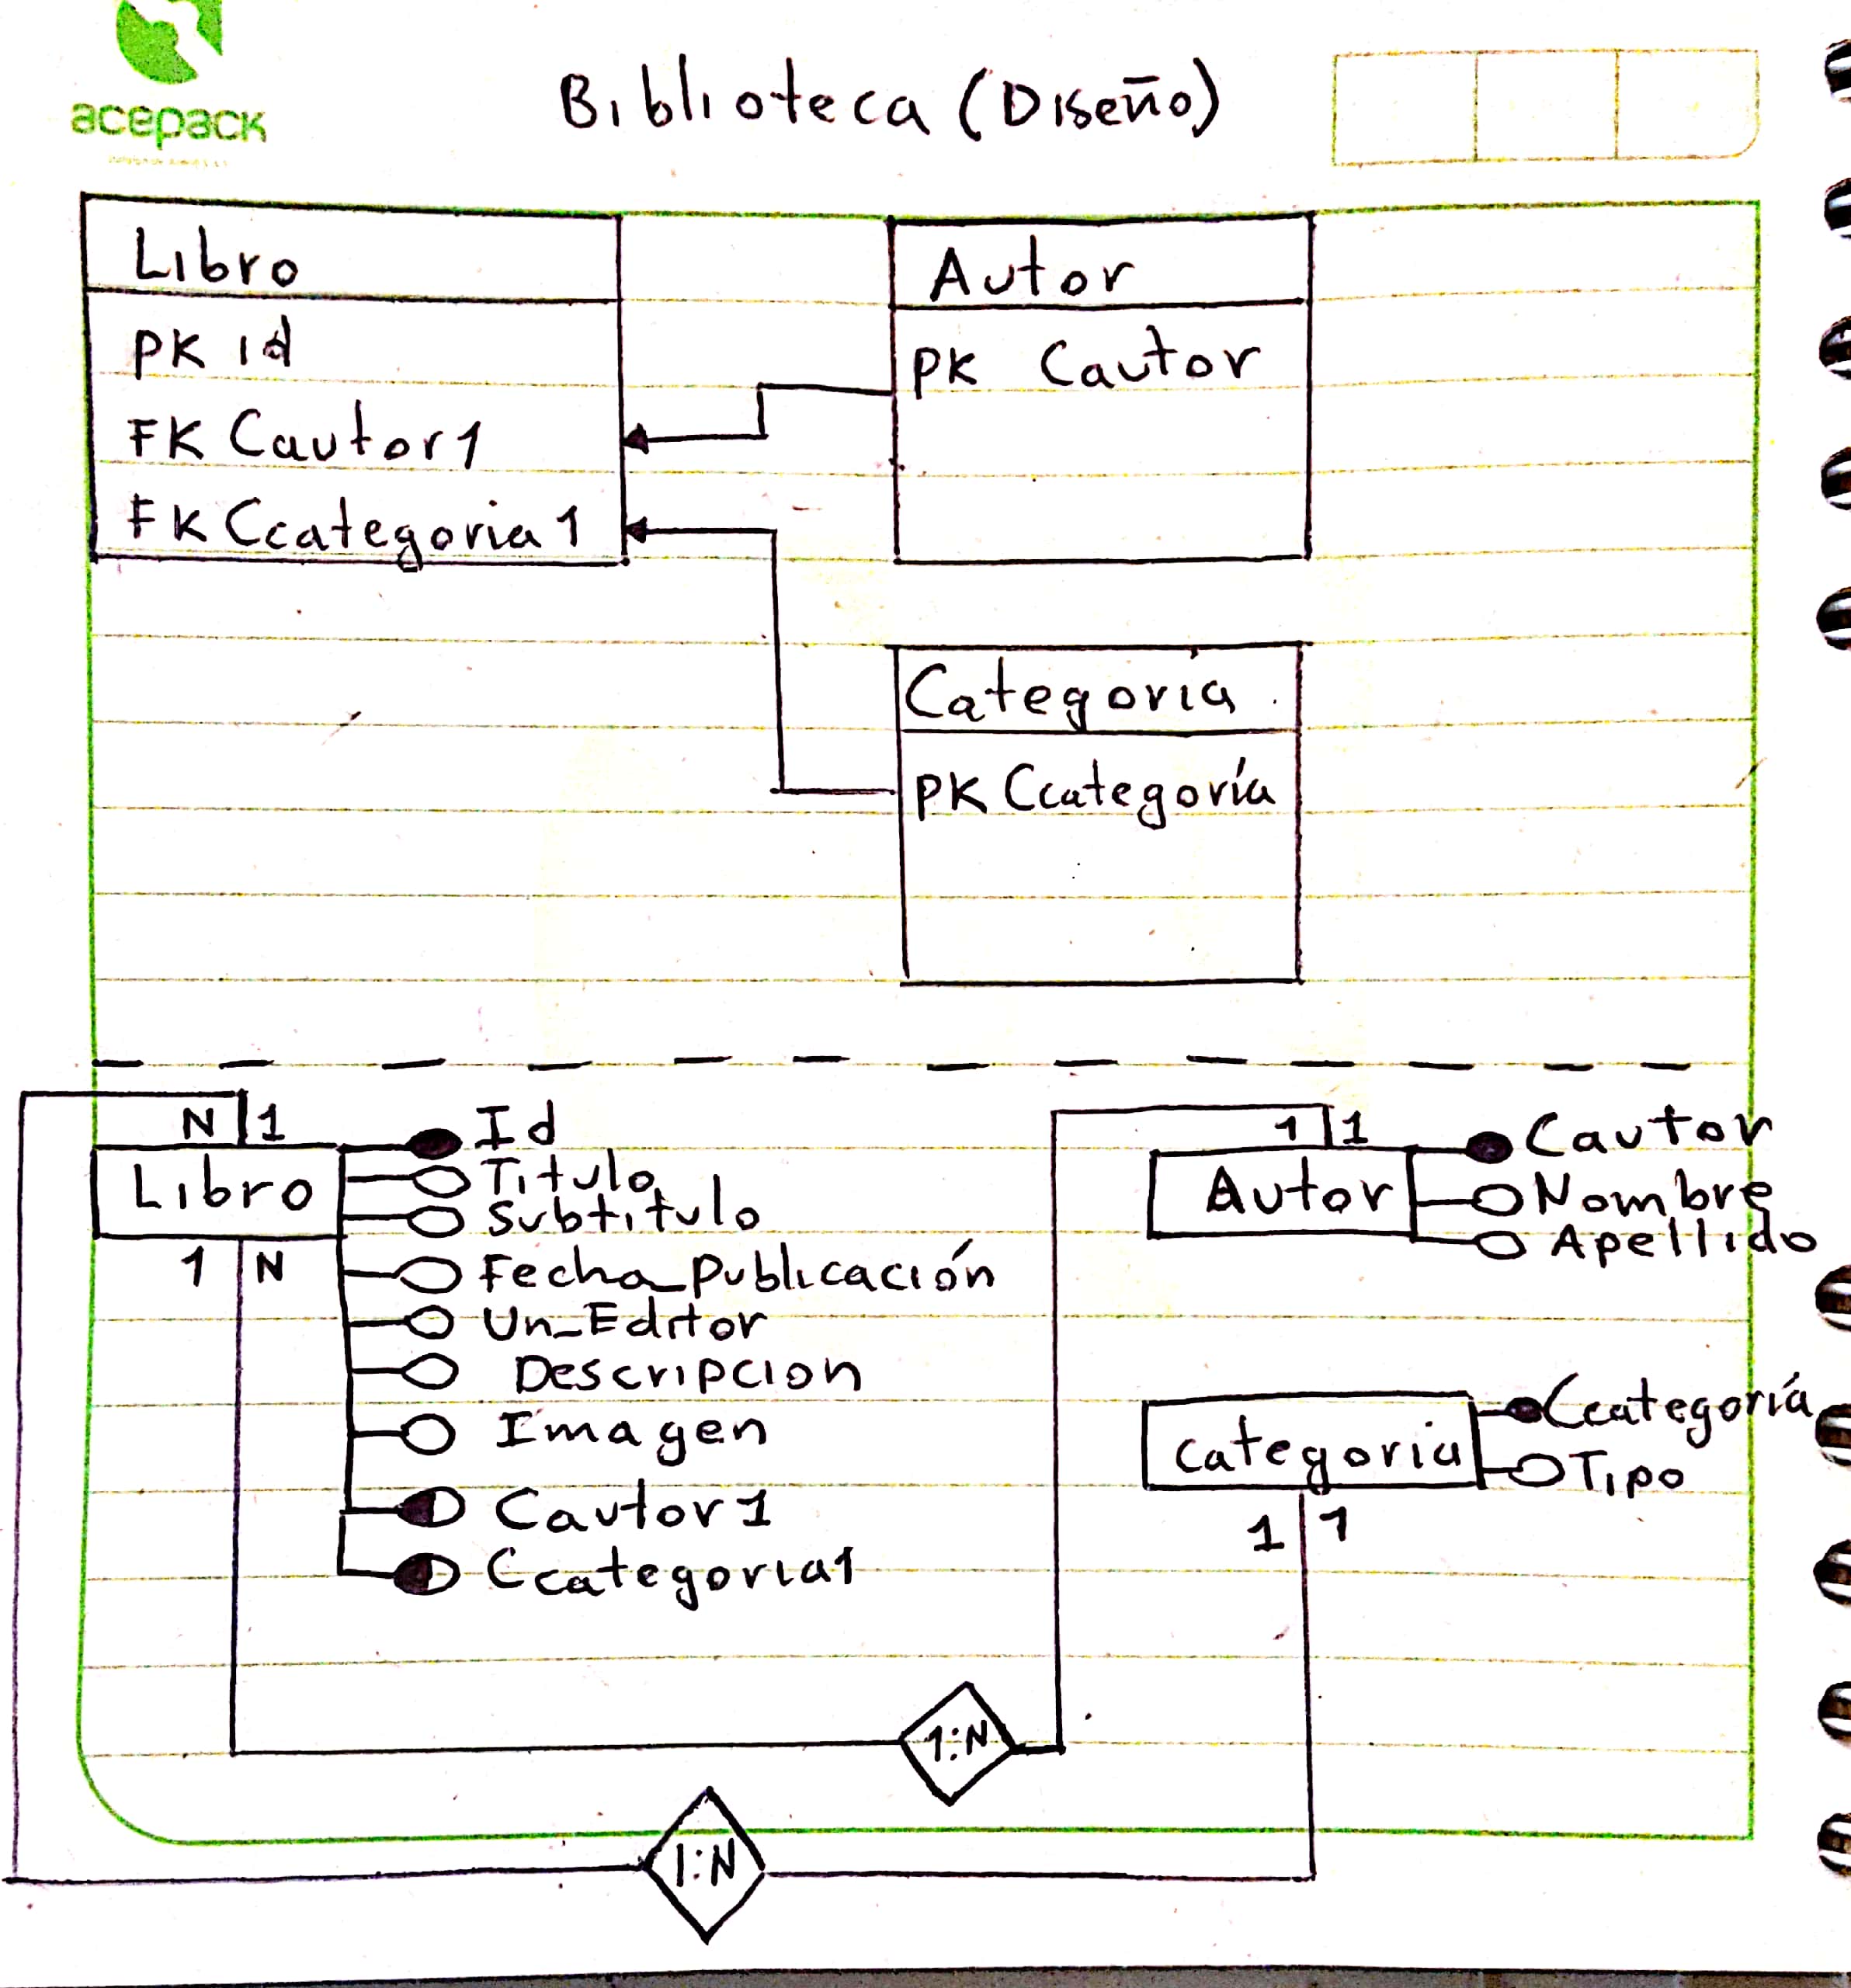 acepack
Biblioteca (Diseño)
Libro
PK id
FK Cautor1
FK Ccategoria1
Autor
PK Cautor
Categoria
PK Ccategoría
N 1
Libro
1 N
Id
Titulo
Subtitulo
Fecha_Publicación
Un_Editor
Descripcion
Imagen
Cautor1
Ccategoria1
1 1
Autor
Cautor
Nombre
Apellido
categoria
Ccategoría
Tipo
1 1
1:N
1:N